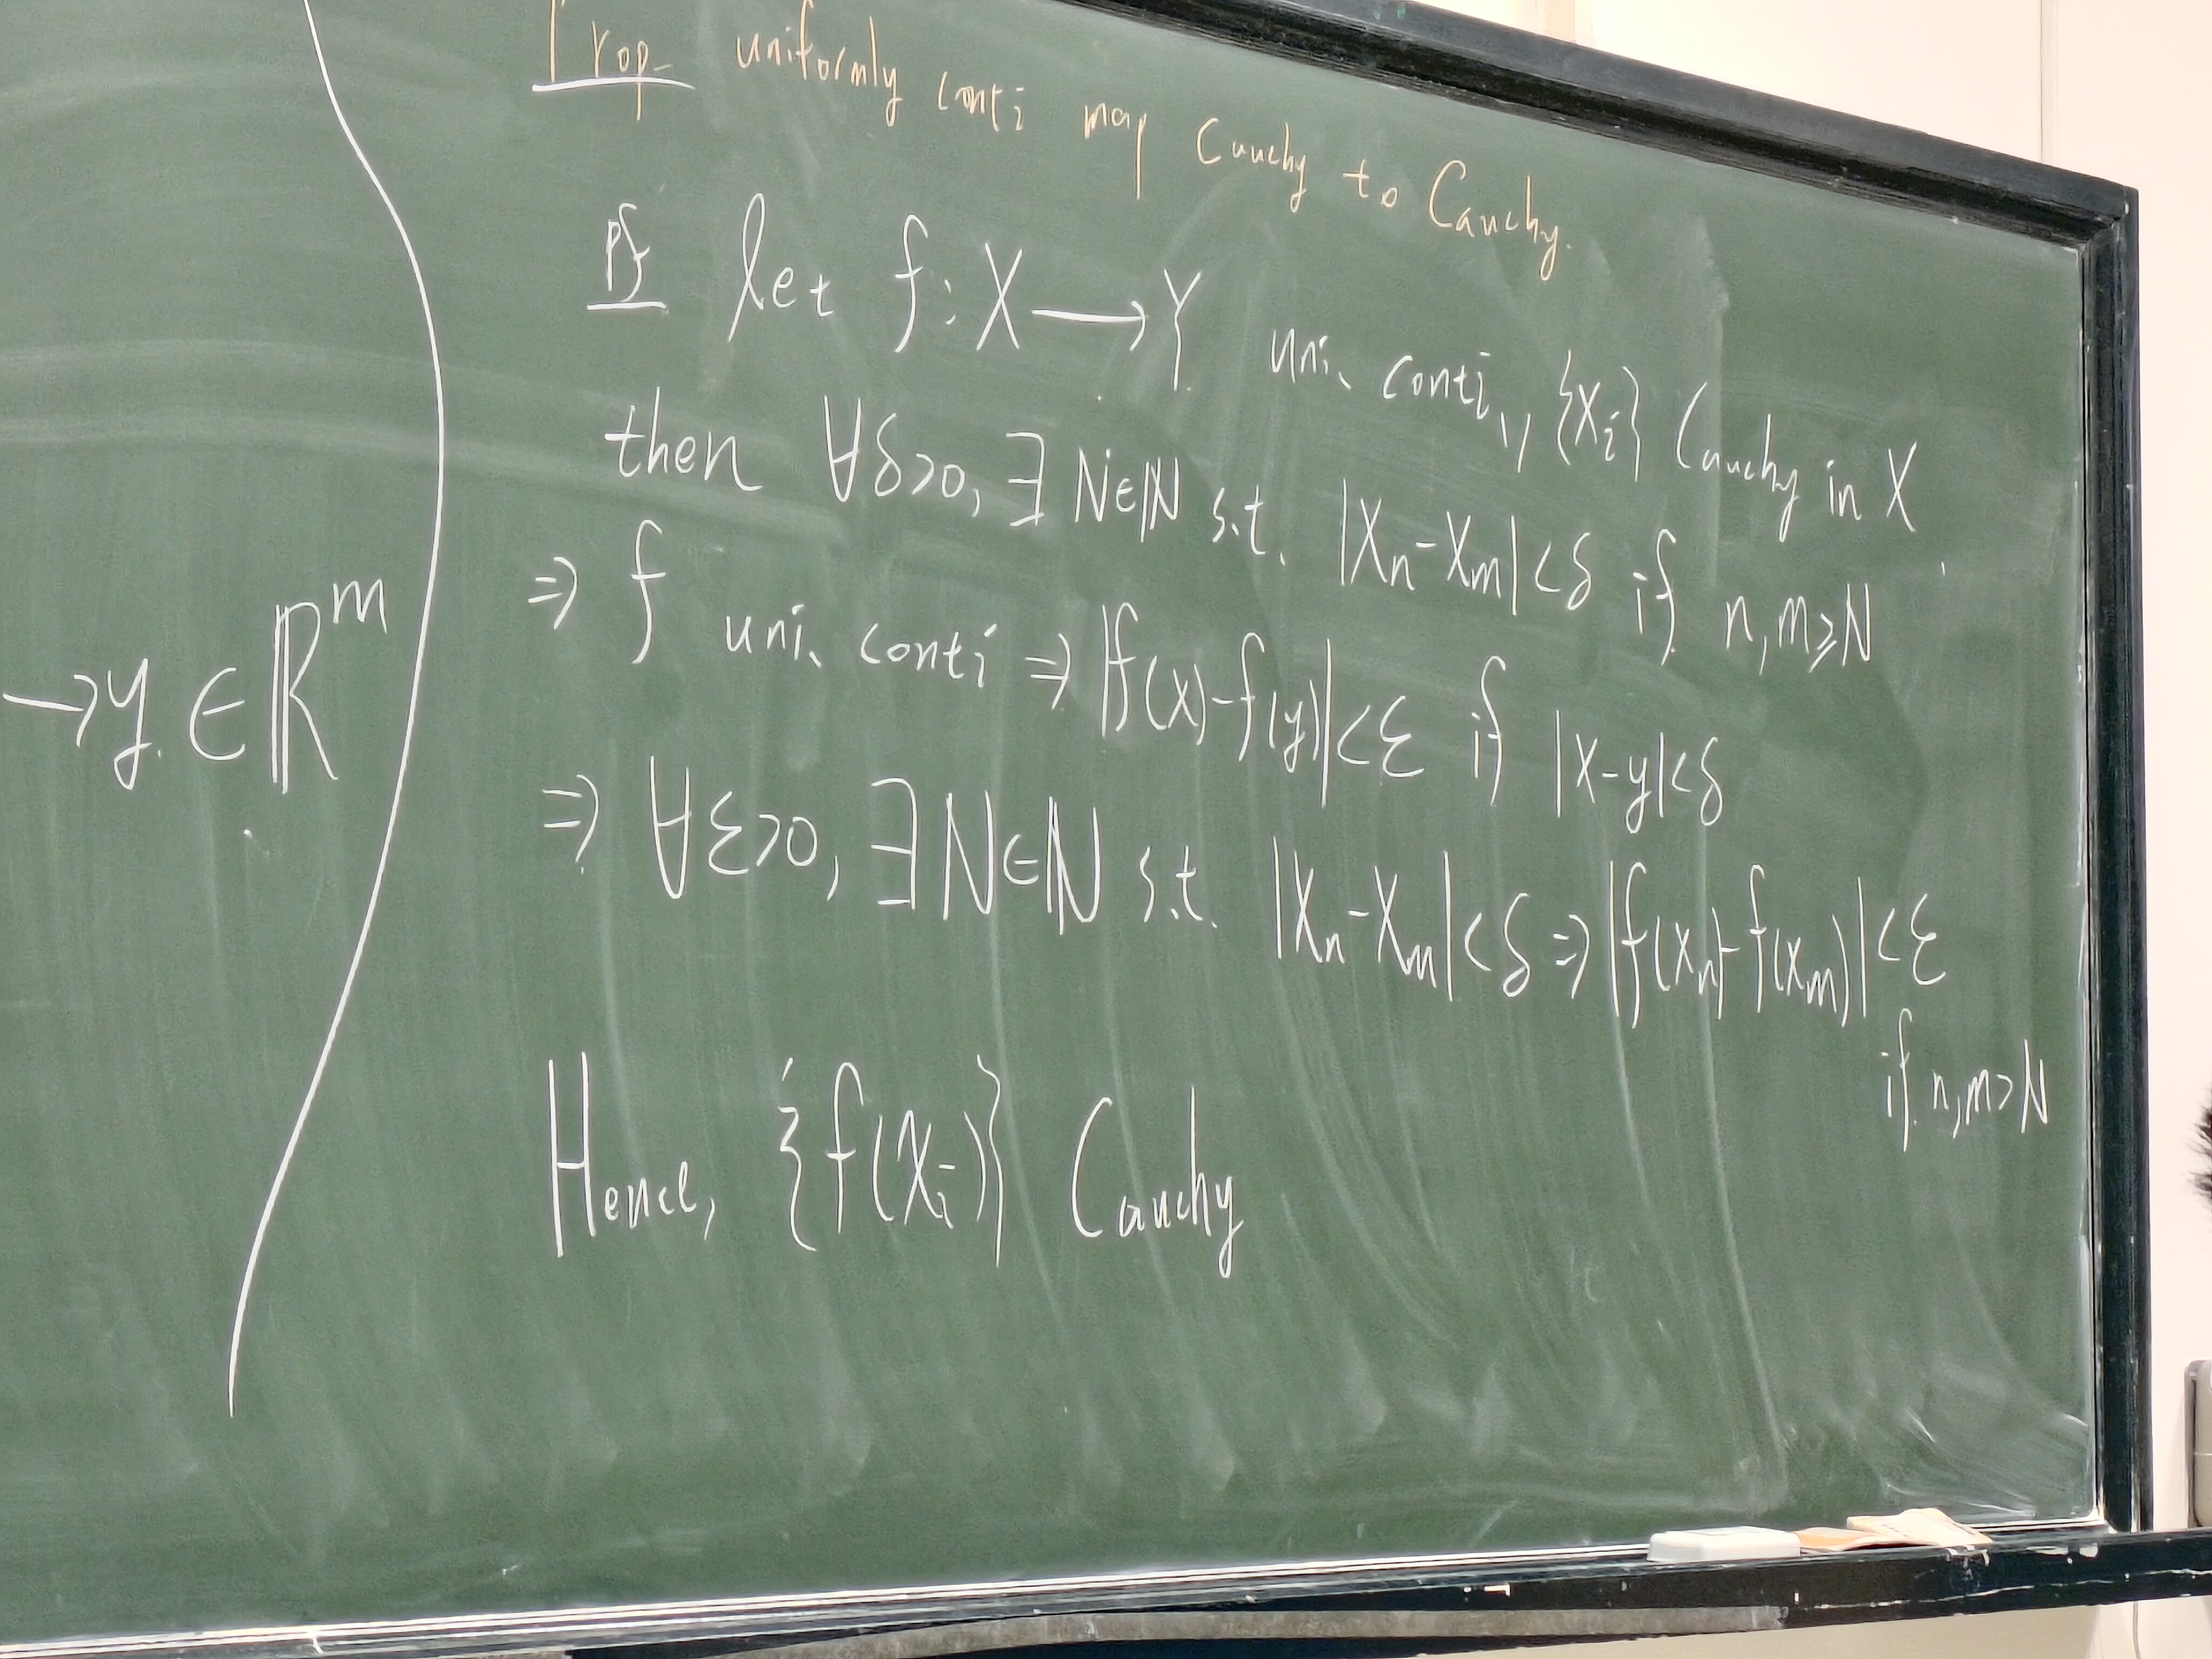 Prop uniformly conti map Cauchy to Cauchy.
pf let f: X ⟶ Y uni. conti, {xᵢ} Cauchy in X
then ∀δ>0, ∃ N∈ℕ s.t. |xₙ-xₘ|<δ if n,m≥N
⇒ f uni. conti ⇒ |f(x)-f(y)|<ε if |x-y|<δ
⇒ ∀ε>0, ∃ N∈ℕ s.t. |xₙ-xₘ|<δ ⇒ |f(xₙ)-f(xₘ)|<ε
if n,m>N
Hence, {f(xᵢ)} Cauchy
→y ∈ ℝᵐ